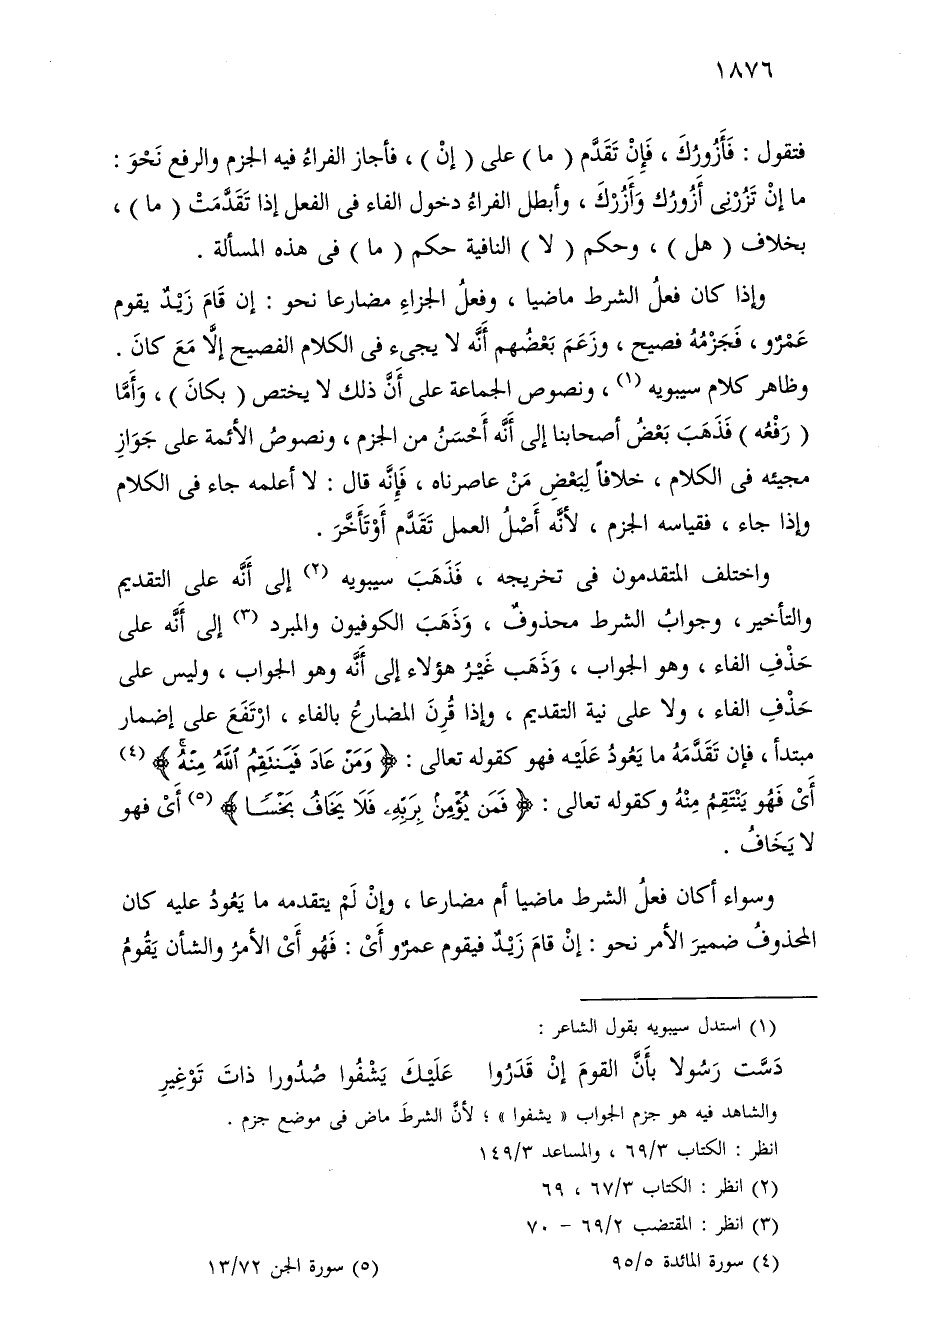 ١٨٧٦
فتقول : فَأَزُورُكَ ، فَإِنْ تَقَدَّم ( ما ) على ( إنْ ) ، فأجاز الفراءُ فيه الجزم والرفع نَحْوَ :
ما إنْ تَزُرْنِى أَزُورُك وَأَزُرْكَ ، وأبطل الفراءُ دخول الفاء فى الفعل إذا تَقَدَّمَتْ ( ما ) ،
بخلاف ( هل ) ، وحكم ( لا ) النافية حكم ( ما ) فى هذه المسألة .
وإذا كان فعلُ الشرط ماضيا ، وفعلُ الجزاءِ مضارعا نحو : إن قَامَ زَيْدٌ يقوم
عَمْرٌو ، فَجَزْمُهُ فصيح ، وزَعَمَ بَعْضُهم أَنَّه لا يجىء فى الكلام الفصيح إلَّا مَعَ كانَ .
وظاهر كلام سيبويه (١) ، ونصوص الجماعة على أَنَّ ذلك لا يختص ( بكانَ ) ، وَأَمَّا
( رَفْعُه ) فَذَهَبَ بَعْضُ أصحابنا إلى أَنَّه أَحْسَنُ من الجزم ، ونصوصُ الأئمة على جَوَازِ
مجيئه فى الكلام ، خلافاً لِبَعْضِ مَنْ عاصرناه ، فَإِنَّه قال : لا أعلمه جاء فى الكلام
وإذا جاء ، فقياسه الجزم ، لأنَّه أَصْلُ العمل تَقَدَّم أَوْتَأَخَّرَ .
واختلف المتقدمون فى تخريجه ، فَذَهَبَ سيبويه (٢) إلى أَنَّه على التقديم
والتأخير ، وجوابُ الشرط محذوفٌ ، وَذَهَبَ الكوفيون والمبرد (٣) إلى أَنَّه على
حَذْفِ الفاء ، وهو الجواب ، وَذَهَب غَيْرُ هؤلاء إلى أَنَّه وهو الجواب ، وليس على
حَذْفِ الفاء ، ولا على نية التقديم ، وإذا قُرِنَ المضارعُ بالفاء ، ارْتَفَعَ على إضمار
مبتدأ ، فإن تَقَدَّمَهُ ما يَعُودُ عَلَيْه فهو كقوله تعالى : ﴿ وَمَنْ عَادَ فَيَنتَقِمُ ٱللَّهُ مِنْهُ ﴾ (٤)
أَىْ فَهُو يَنْتَقِمُ مِنْهُ وكقوله تعالى : ﴿ فَمَن يُؤْمِنۢ بِرَبِّهِۦ فَلَا يَخَافُ بَخْسًا ﴾ (٥) أَىْ فهو
لا يَخَافُ .
وسواء أكان فعلُ الشرط ماضيا أم مضارعا ، وإنْ لَمْ يتقدمه ما يَعُودُ عليه كان
المحذوفُ ضميرَ الأمر نحو : إنْ قامَ زَيْدٌ فيقوم عمرٌو أَىْ : فَهُو أَىْ الأمرُ والشأن يَقُومُ
(١) استدل سيبويه بقول الشاعر :
دَسَّت رَسُولا بأَنَّ القومَ إنْ قَدَرُوا عَلَيْكَ يَشْفُوا صُدُورا ذاتَ تَوْغِيرِ
والشاهد فيه هو جزم الجواب « يشفوا » ؛ لأنَّ الشرطَ ماض فى موضع جزم .
انظر : الكتاب ٦٩/٣ ، والمساعد ١٤٩/٣
(٢) انظر : الكتاب ٦٧/٣ ، ٦٩
(٣) انظر : المقتضب ٦٩/٢ – ٧٠
(٤) سورة المائدة ٩٥/٥ (٥) سورة الجن ١٣/٧٢